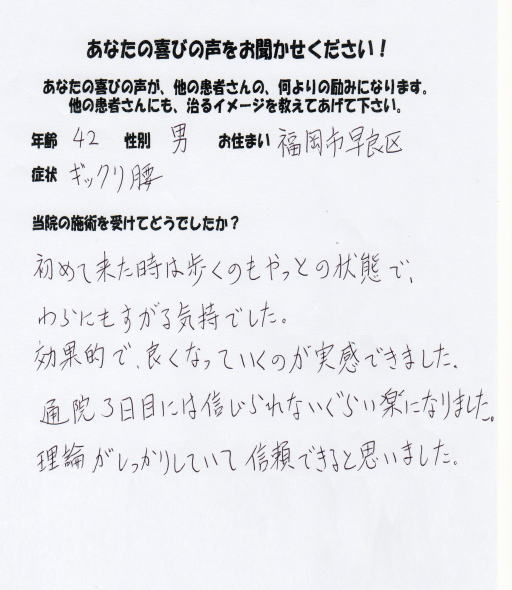 あなたの喜びの声をお聞かせください！
あなたの喜びの声が、他の患者さんの、何よりの励みになります。
他の患者さんにも、治るイメージを教えてあげて下さい。
年齢 42 性別 男 お住まい 福岡市早良区
症状 ギックリ腰
当院の施術を受けてどうでしたか？
初めて来た時は歩くのもやっとの状態で、
わらにもすがる気持でした。
効果的で、良くなっていくのが実感できました。
通院3日目には信じられないぐらい楽になりました。
理論がしっかりしていて信頼できると思いました。